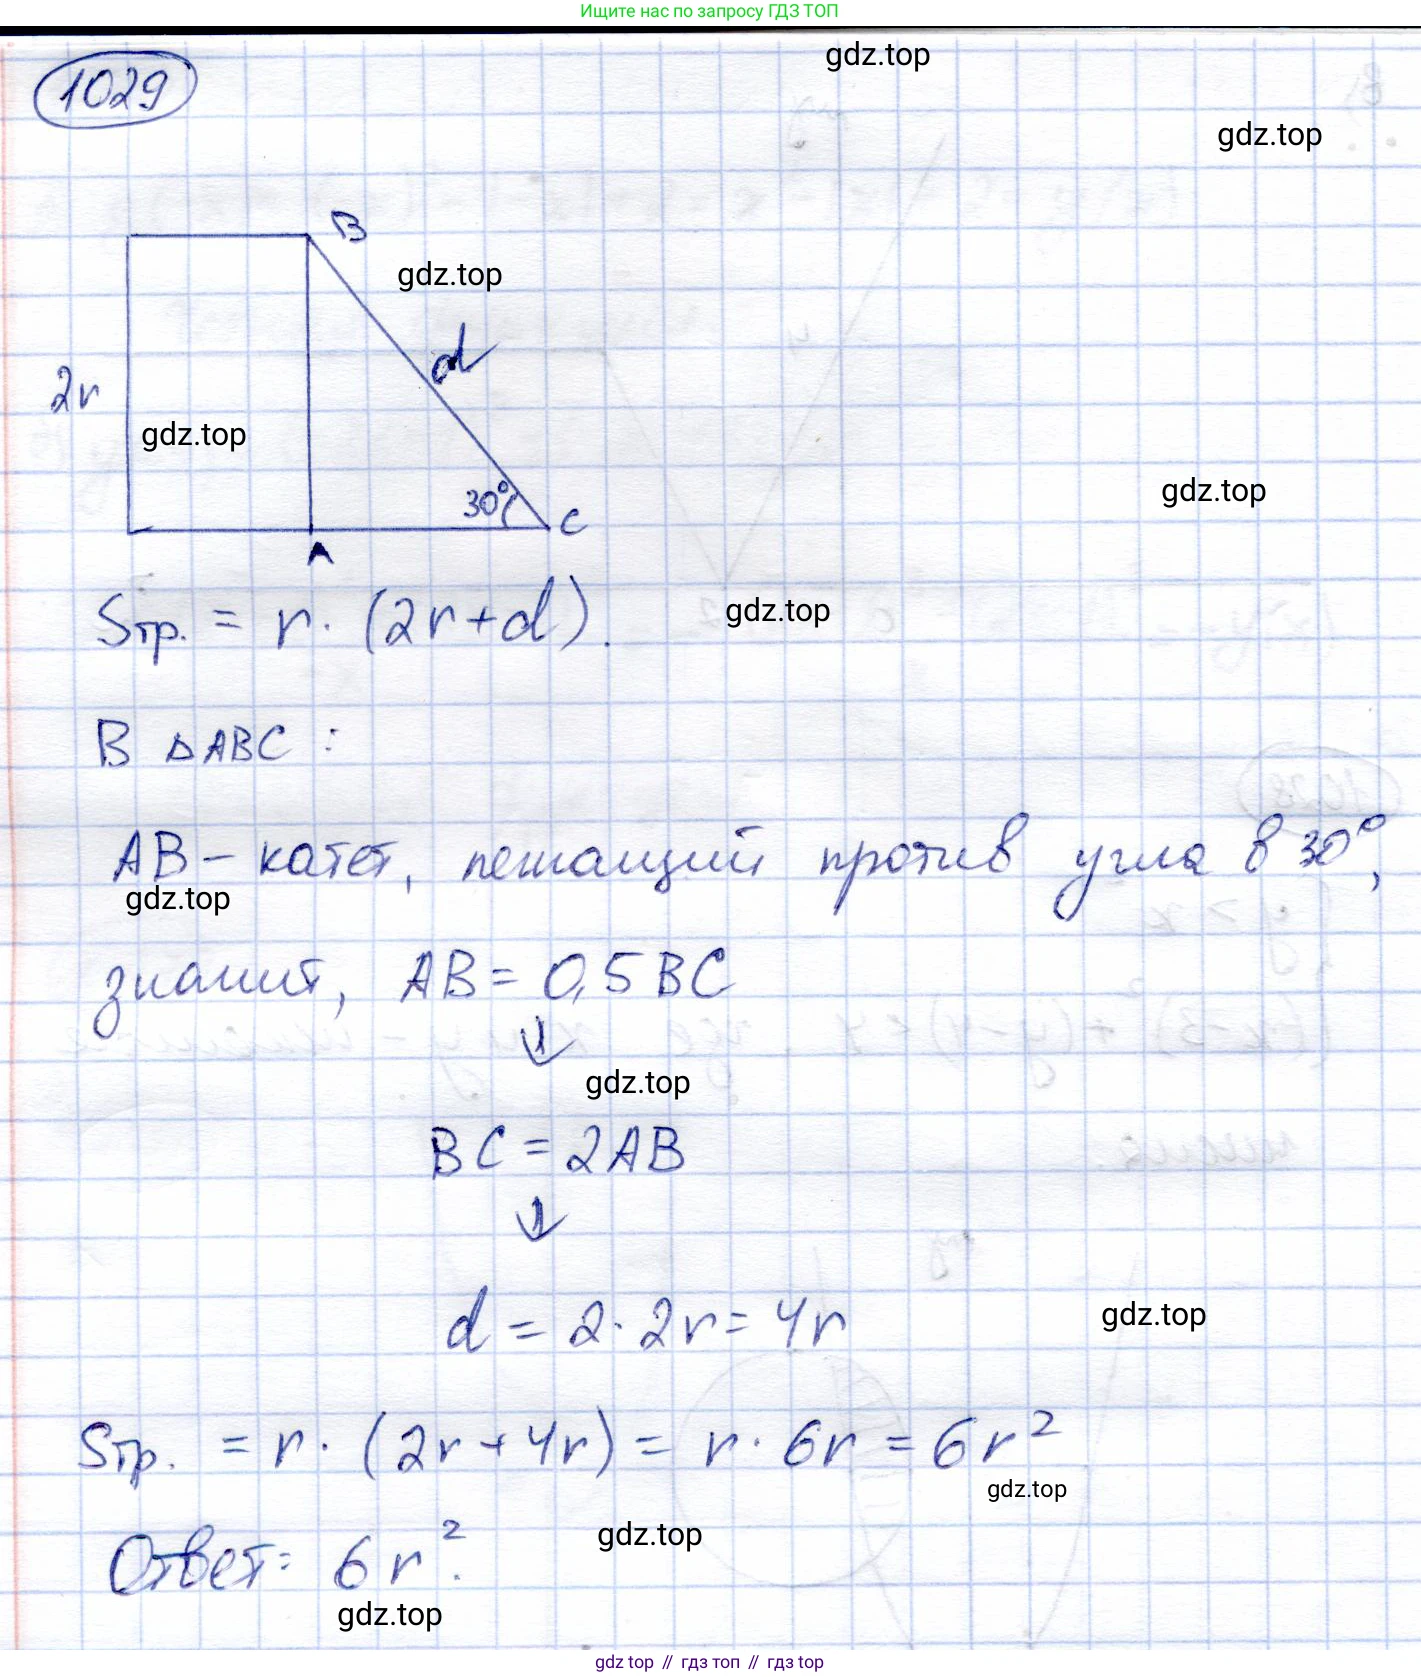 Ищите нас по запросу ГДЗ ТОП
gdz.top
1029
gdz.top
B
gdz.top
d
2r
gdz.top
30°
C
gdz.top
A
Sтр. = r · (2r+d).
gdz.top
В △ABC :
AB – катет, лежащий против угла в 30°,
gdz.top
значит, AB = 0,5 BC
↓
gdz.top
BC = 2AB
↓
d = 2 · 2r = 4r
gdz.top
Sтр. = r · (2r + 4r) = r · 6r = 6r²
gdz.top
gdz.top
Ответ: 6r².
gdz.top
gdz top // гдз топ // гдз top